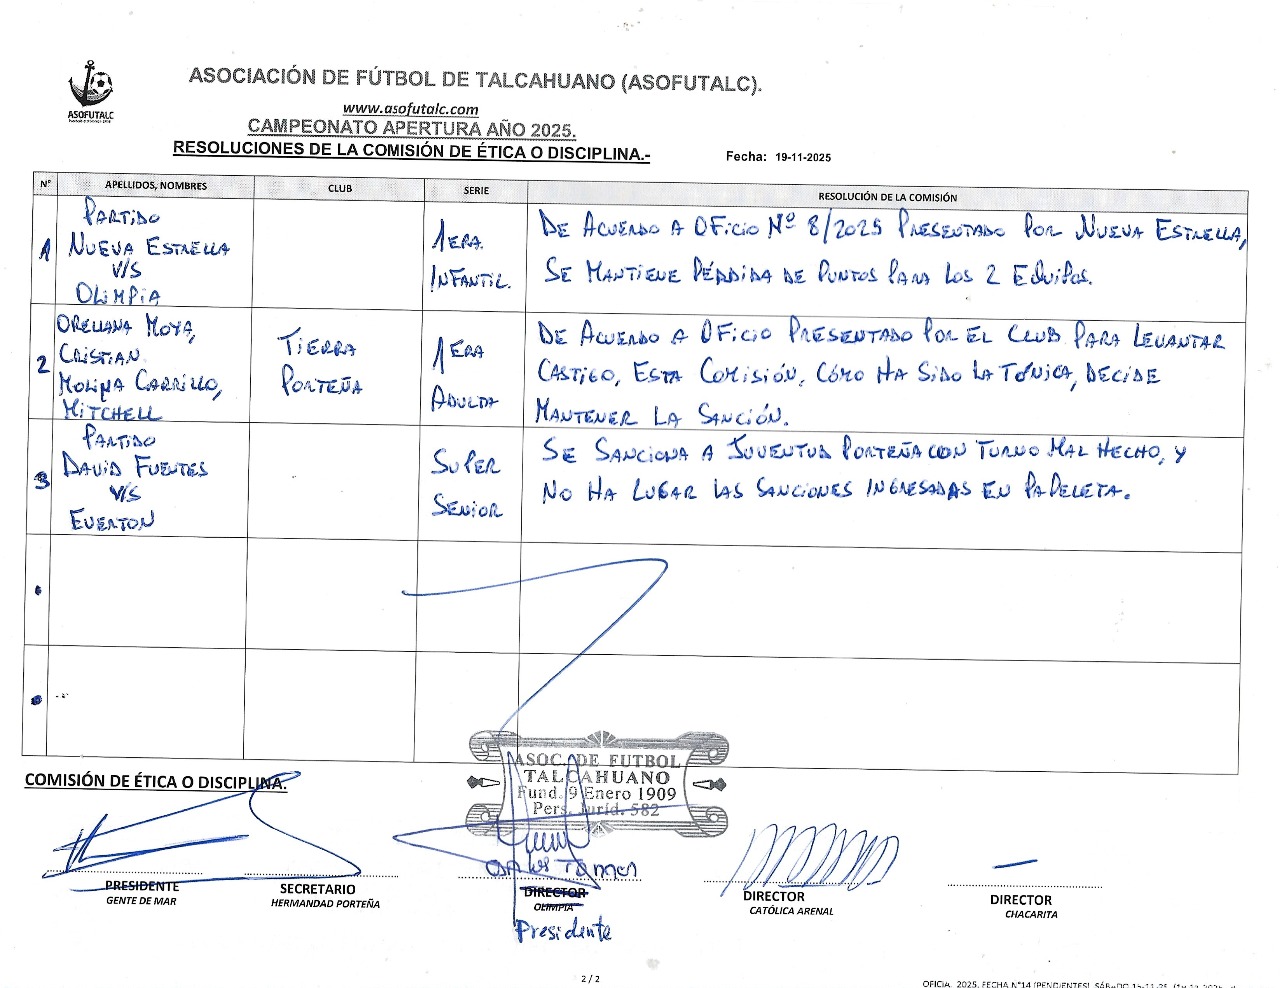 ASOCIACIÓN DE FÚTBOL DE TALCAHUANO (ASOFUTALC).
ASOFUTALC
www.asofutalc.com
CAMPEONATO APERTURA AÑO 2025.
RESOLUCIONES DE LA COMISIÓN DE ÉTICA O DISCIPLINA.-
Fecha: 19-11-2025
N° APELLIDOS, NOMBRES CLUB SERIE RESOLUCIÓN DE LA COMISIÓN
1
PARTIDO
NUEVA ESTRELLA
V/S
OLIMPIA
1ERA.
INFANTIL.
DE ACUERDO A OFICIO Nº 8/2025 PRESENTADO POR NUEVA ESTRELLA,
SE MANTIENE PÉRDIDA DE PUNTOS PARA LOS 2 EQUIPOS.
2
ORELLANA MOYA,
CRISTIAN
MOLINA CARRILLO,
MITCHELL
TIERRA
PORTEÑA
1ERA
ADULTA
DE ACUERDO A OFICIO PRESENTADO POR EL CLUB PARA LEVANTAR
CASTIGO, ESTA COMISIÓN, CÓMO HA SIDO LA TÓNICA, DECIDE
MANTENER LA SANCIÓN.
3
PARTIDO
DAVID FUENTES
V/S
EVERTON
SUPER
SENIOR
SE SANCIONA A JUVENTUD PORTEÑA CON TURNO MAL HECHO, Y
NO HA LUGAR LAS SANCIONES INGRESADAS EN PAPELETA.
ASOC. DE FUTBOL
TALCAHUANO
Fund. 9 Enero 1909
Pers. Juríd. 582
COMISIÓN DE ÉTICA O DISCIPLINA.
PRESIDENTE
GENTE DE MAR
SECRETARIO
HERMANDAD PORTEÑA
DIRECTOR
OLIMPIA
Presidente
DIRECTOR
CATÓLICA ARENAL
DIRECTOR
CHACARITA
2 / 2
2025. FECHA N°14 (PENDIENTES)